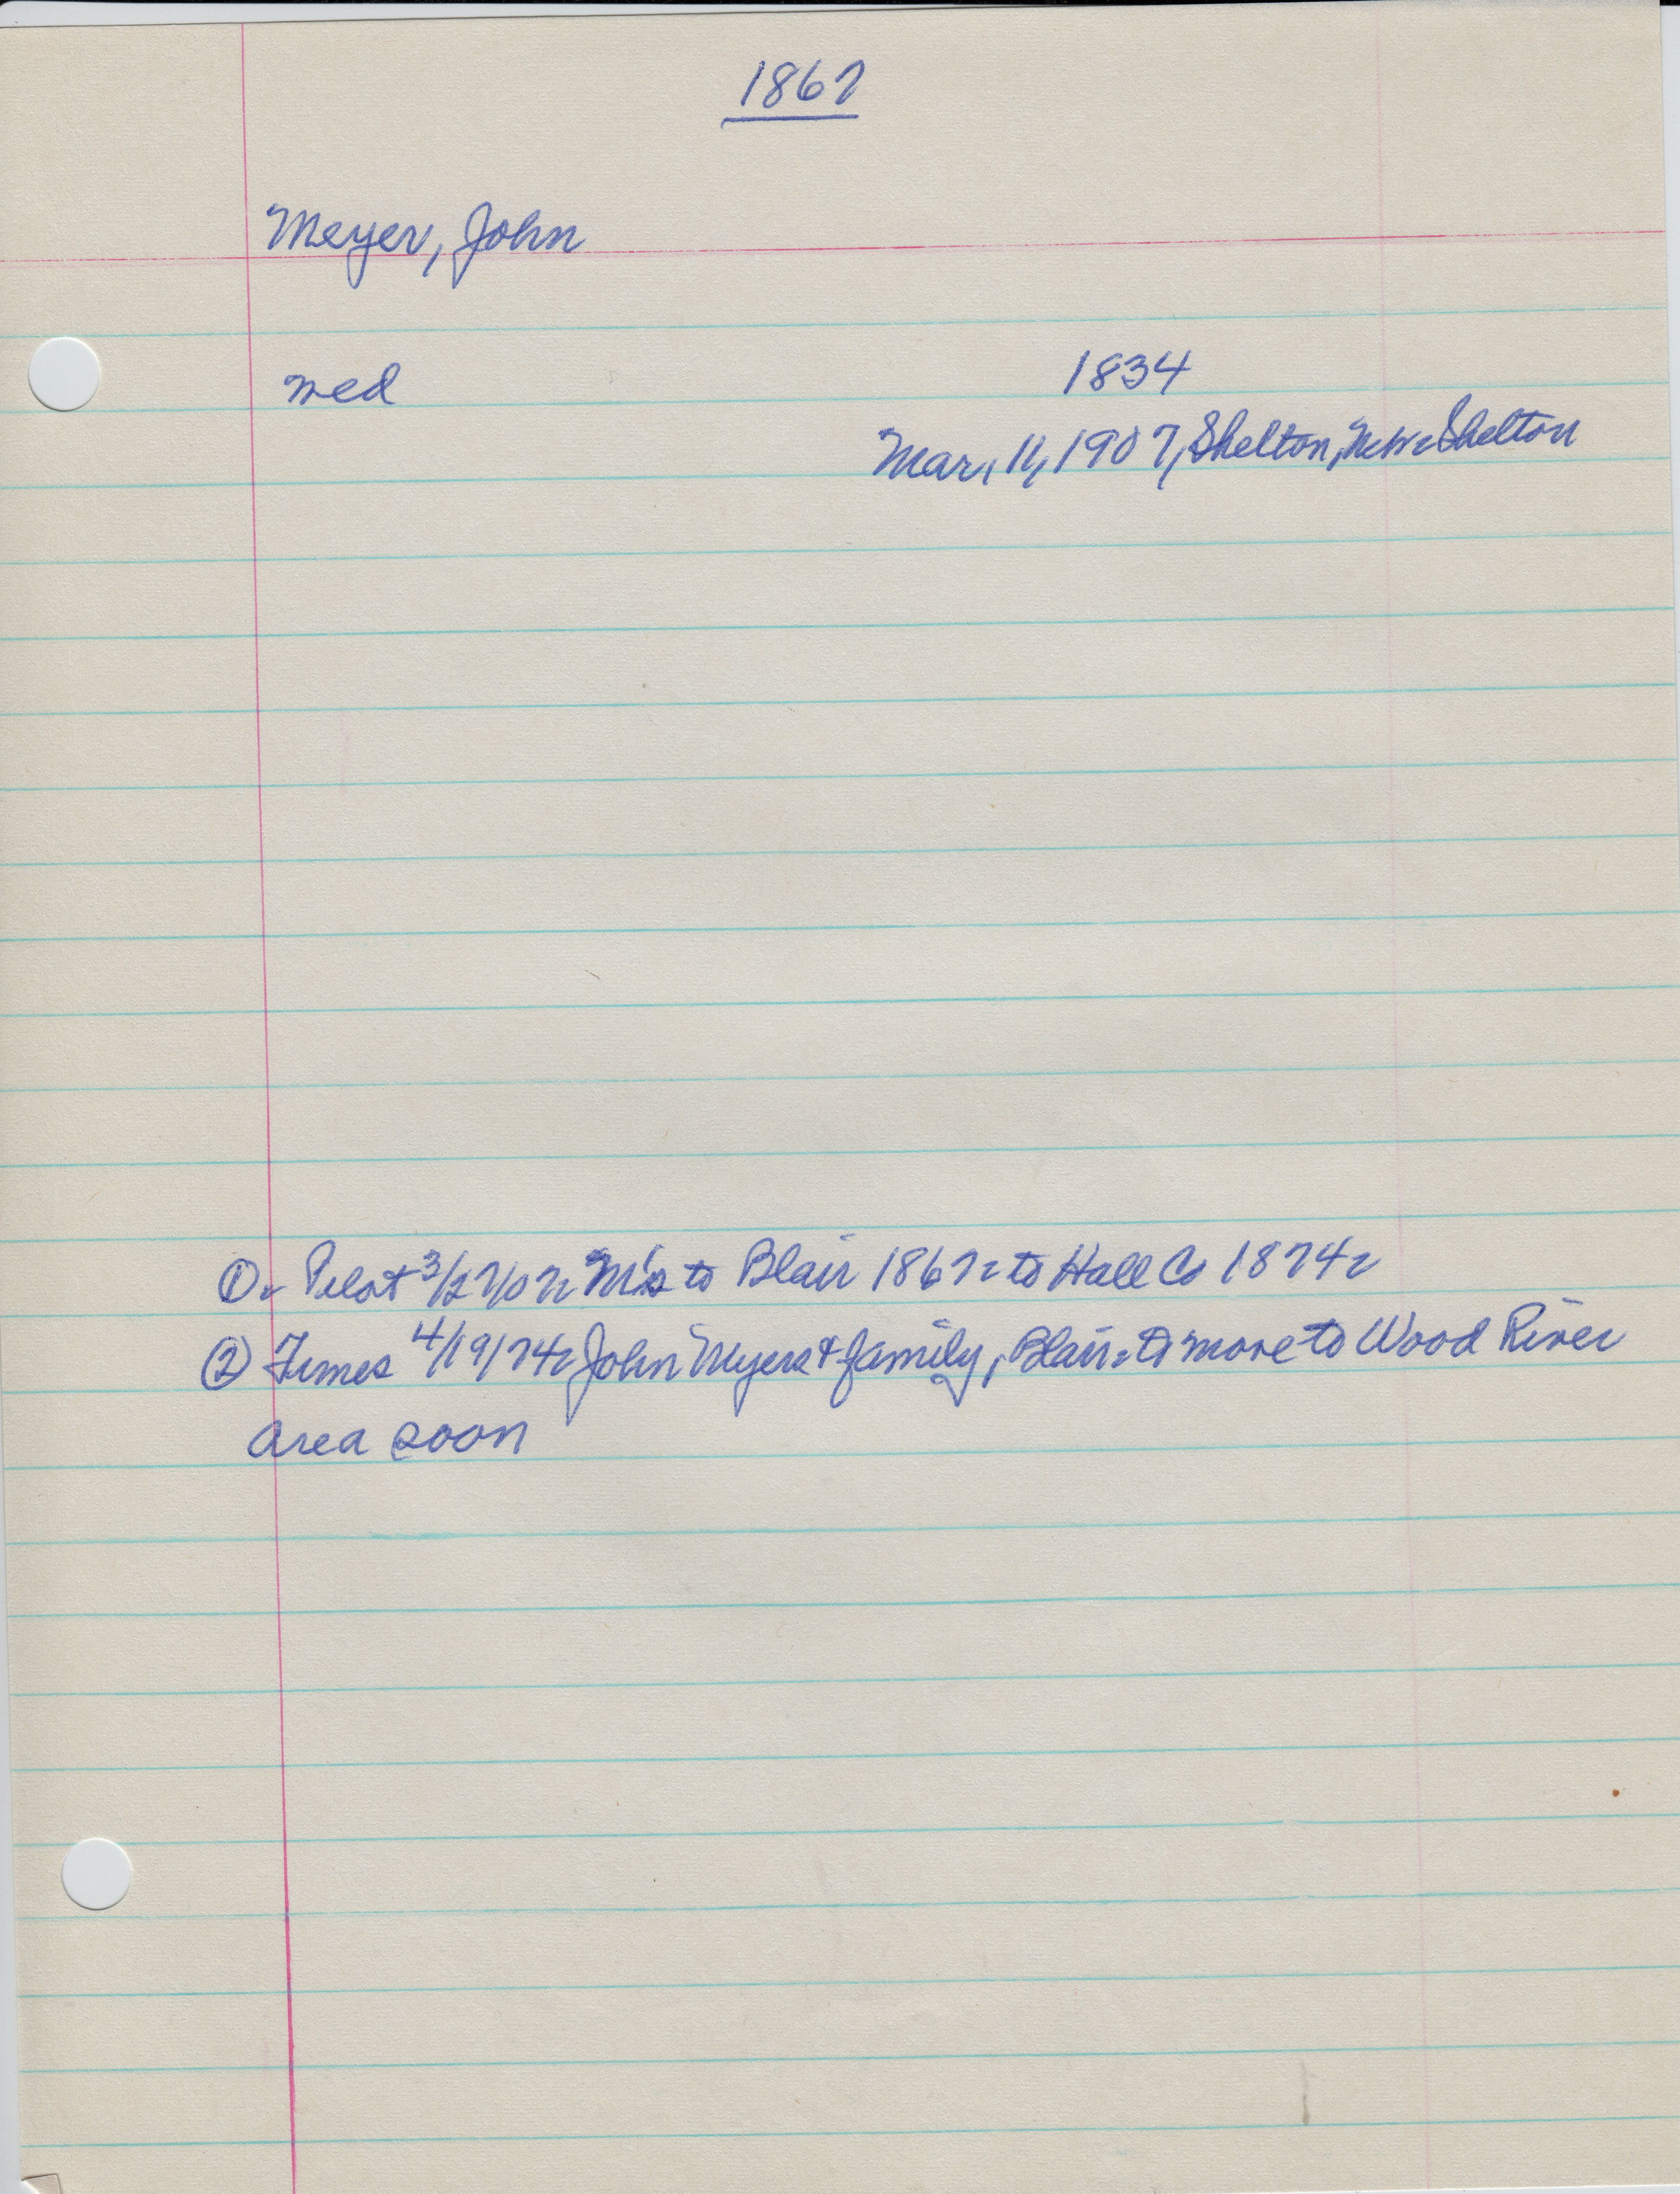 1867
Meyer, John
med 1834
Mar, 11, 1907, Shelton, Nebr-Shelton
①- Pilot 3/27/07- M's to Blair 1867- to Hall Co 1874-
② Times 4/19/74- John Myers & family, Blair- to move to Wood River
area soon